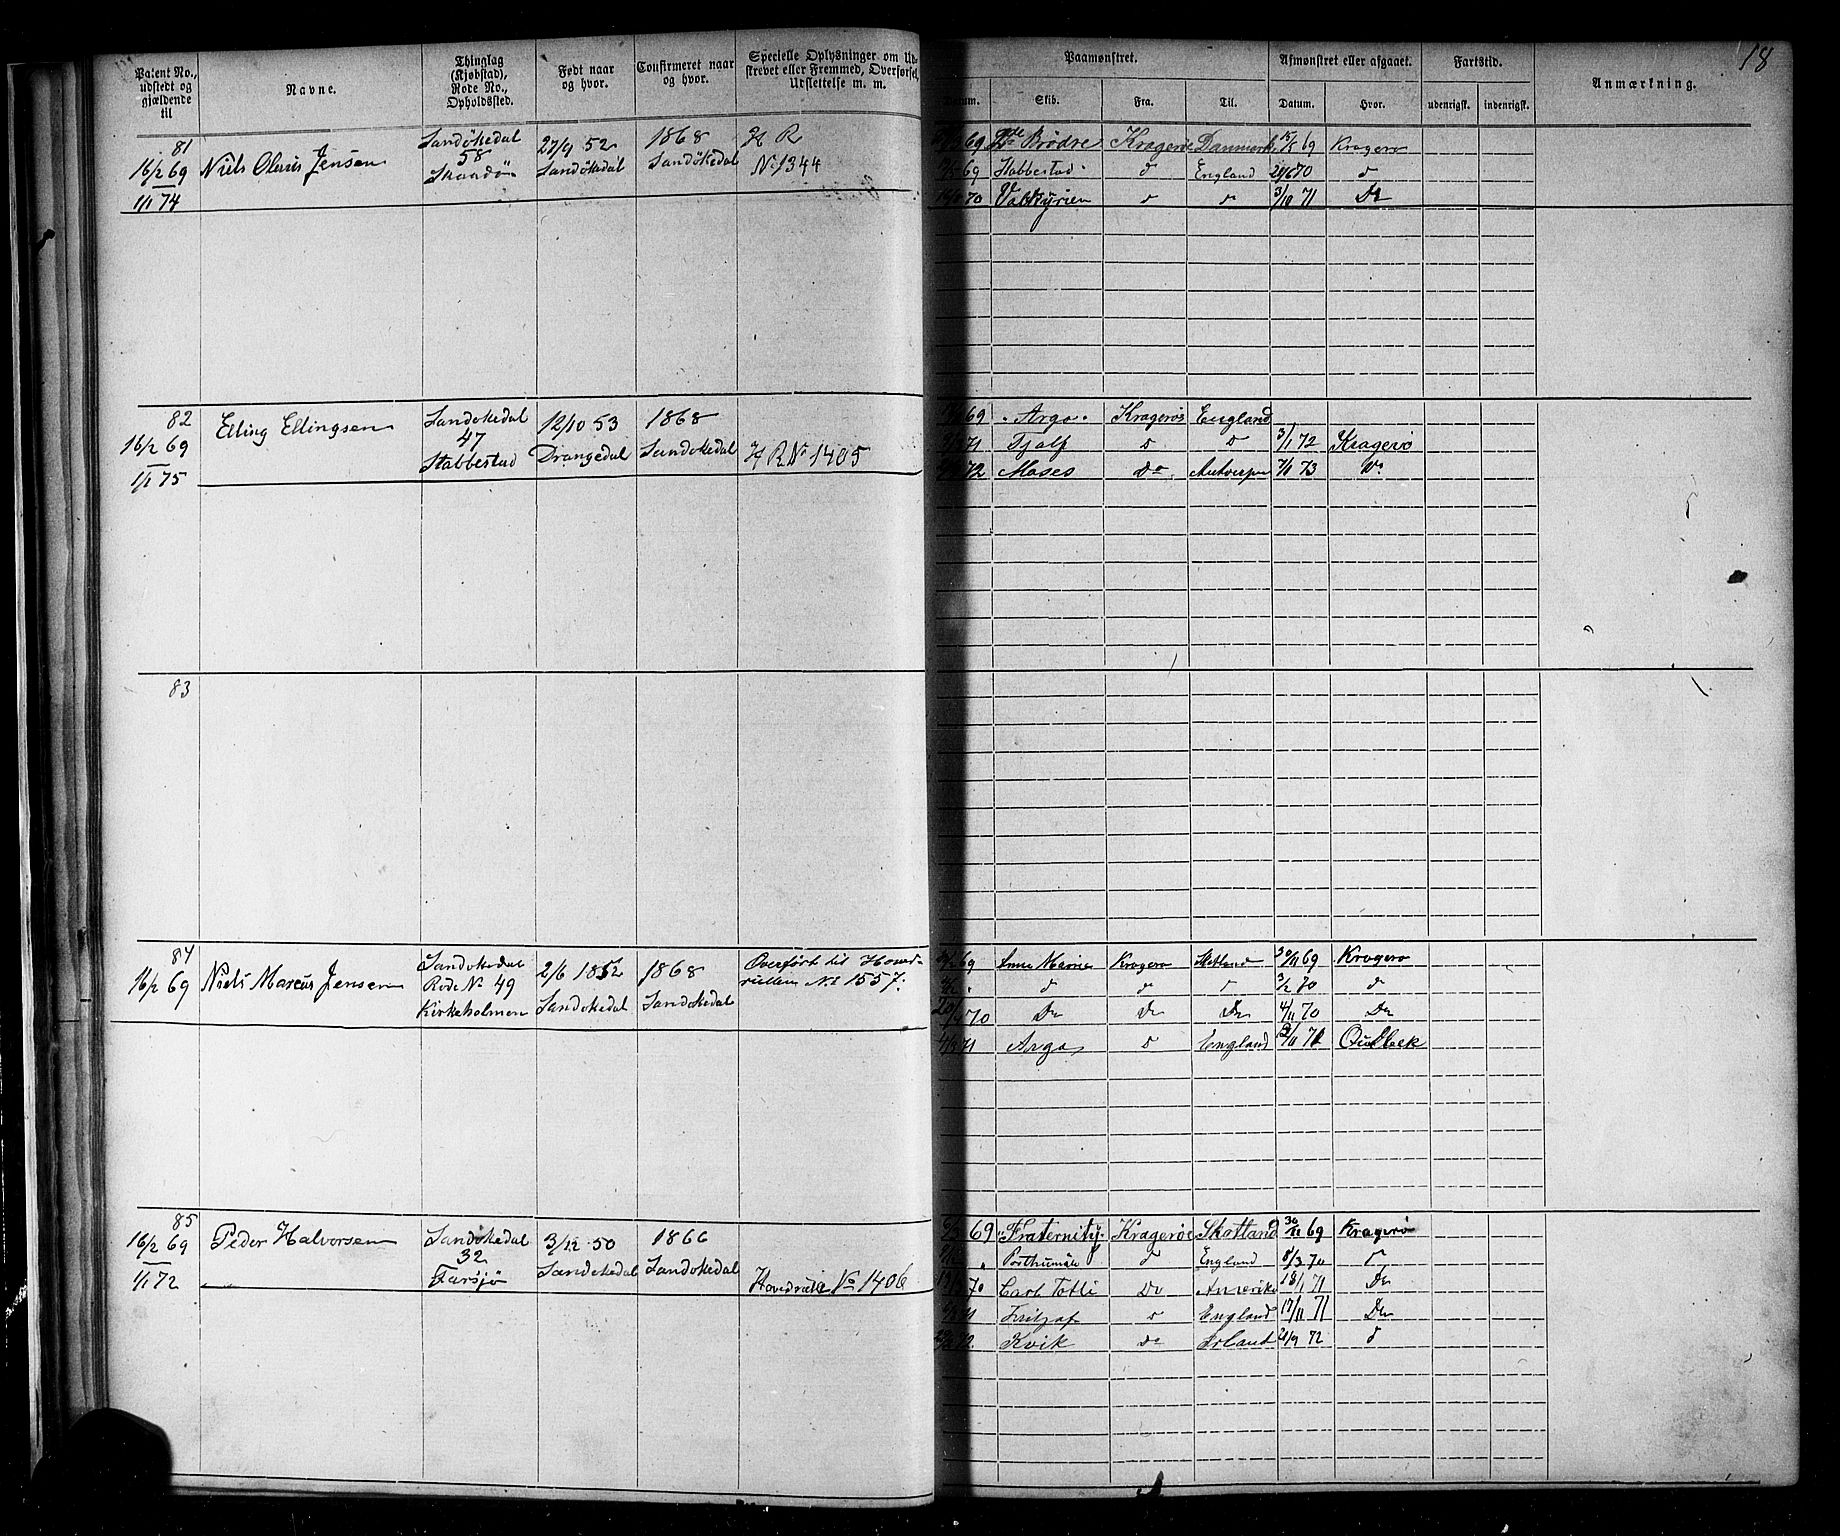 18
Patent No., udstedt og gjældende til
Navne.
Thinglag (Kjøbstad), Rode No., Opholdssted.
Født naar og hvor.
Confirmeret naar og hvor.
Specielle Oplysninger om Udstrevet eller Fremmed, Overførsel, Udslettelse m. m.
Paamønstret.
Datum. Skib. Fra. Til.
Afmønstret eller afgaaet.
Datum. Hvor.
Fartstid.
udenrigsk. indenrigsk.
Anmærkning.
81
16/2 69
1/1 74
Niels Olaus Jensen
Sandökedal
58
Skaadö
27/9 52
Sandökedal
1868
Sandökedal
H R
No 1344
69 Brödre Kragerøe Danmark 15/5 69 Kragerø
69 Stabbestad d England 29/6 70 d
70 Valkyrien d d 3/10 71 Do
82
16/2 69
1/1 75
Elling Ellingsen
Sandökedal
47
Stabbestad
12/10 53
Drangedal
1868
Sandökedal
H R No 1405
69 Argo Kragerø England
71 Djalf d d 3/1 72 Kragerø
72 Moses Do Antverpen 7/1 73 Do
83
84
16/2 69
Niels Marcus Jensen
Sandökedal
Rode No 49
Kirkeholmen
2/6 1852
Sandökedal
1868
Sandökedal
Overført til Hovedrullen No 1557.
69 Anna Marie Kragerø 30/11 69 Kragerø
d d d 3/2 70 d
70 Do Do Do 4/11 70 Do
71 Argo d England 71
85
16/2 69
1/1 72
Peder Halvorsen
Sandökedal
32
Farsjø
3/12 50
Sandökedal
1866
Sandökedal
Hovedrulle No 1406
6/3 69 Fraternity Kragerøe Skotland 69 Kragerø
d England 8/3 70 d
70 Carl Do Amerika 18/1 71 Do
71 Fritjof d England 17/11 71 Do
72 Kvik Do Irland 21/9 72 d